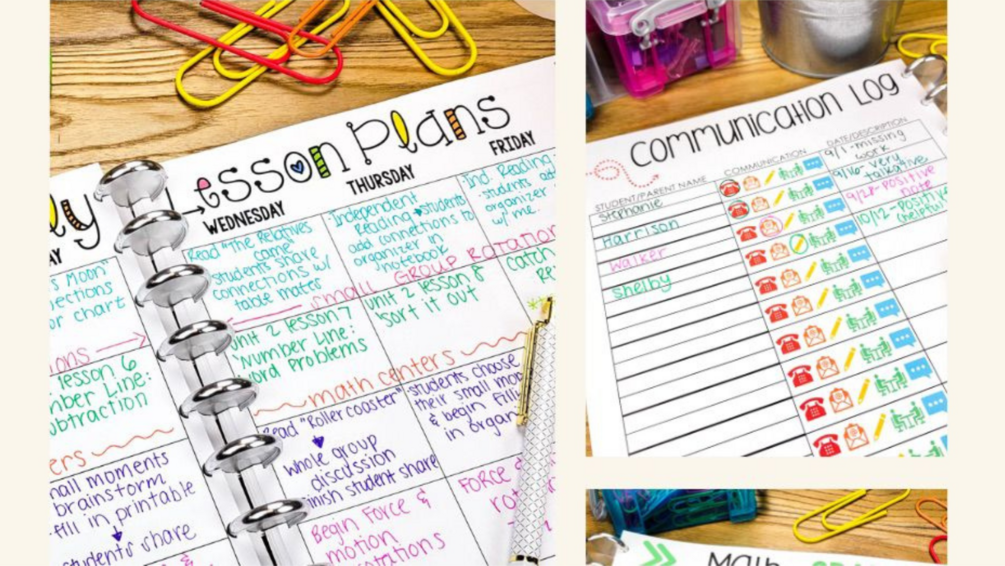 ly Lesson Plans
AY
WEDNESDAY
THURSDAY
FRIDAY
s Moon"
nections
or chart
Read "The Relatives
came"
students share
connections w/
table mates
Independent
Reading → students
add connections to
organizer in
notebook
Ind. Reading
students add
organizer
w/ me.
small GROUP ROTATION
ons
lesson 6
mber Line:
ubtraction
unit 2 lesson 7
"Number Line:
word Problems
unit 2 lesson 8
"sort it out
catch
Re
math centers
ers
mall moments
brainstorm
-fill in printable
students share
Read "Roller coaster"
whole group
discussion
finish student share
students choose
their small mom
& begin filling
in organ
Begin Force &
motion
rotations
Force &
rot
communication Log
STUDENT/PARENT NAME
COMMUNICATION
DATE/DESCRIPTION
Stephanie
9/1-missing
work
Harrison
9/16-very
talkative
Walker
9/27-positive
note
Shelby
10/12-Positive
(helpful
Math